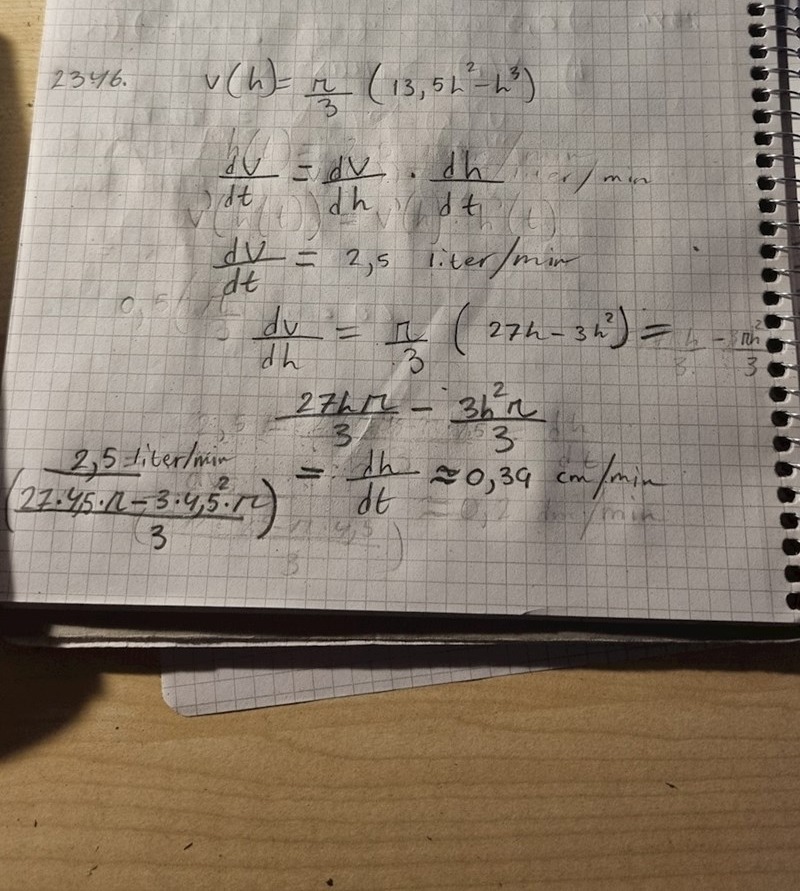 2346. V(h) = π/3 (13,5h² - h³)
dV/dt = dV/dh · dh/dt /min
dV/dt = 2,5 liter/min
dv/dh = π/3 (27h - 3h²) =
27hπ/3 - 3h²π/3
2,5 liter/min / ((27·45·π - 3·4,5²·π)/3) = dh/dt ≈ 0,39 cm/min